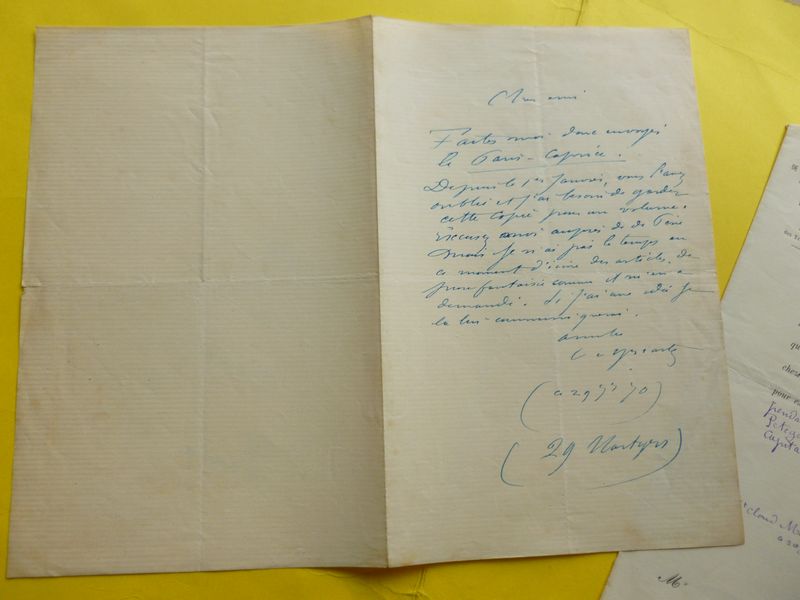 Mon ami
Faites moi donc envoyer
le Paris-Caprice.
Depuis le 1er Janvier, vous l'avez
oublié et j'ai besoin de garder
cette copie pour un volume.
Excusez moi auprès de
mais je n'ai pas le temps en
ce moment d'écrire des articles de
pure fantaisie comme il m'en a
demandé. Si j'ai une idée je
la lui communiquerai.
amitiés
(29 Martyrs)
qu
chose
pour
Cloud M
M.